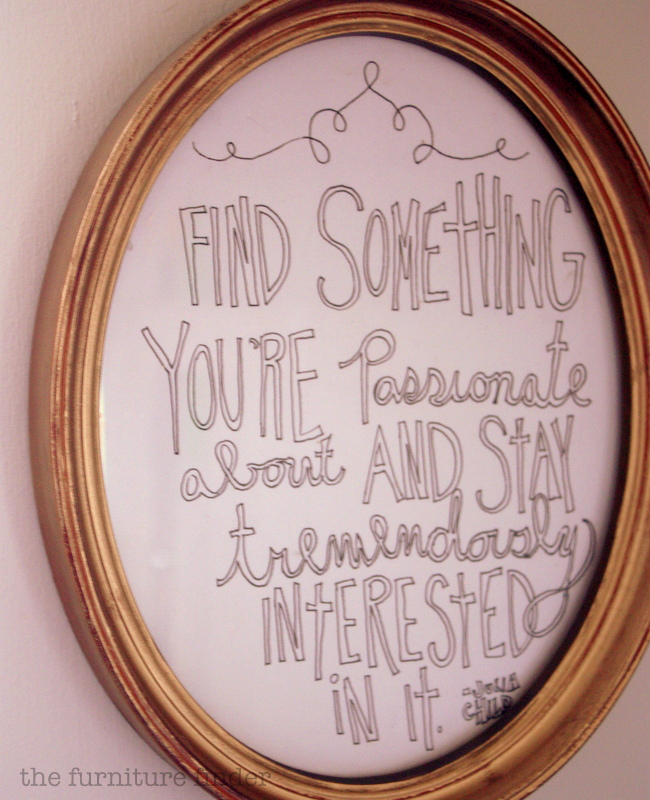 FIND SOMEtHING
YOU'RE Passionate
about AND StAY
tremendously
INtERESTED
IN It.
the furniture finder